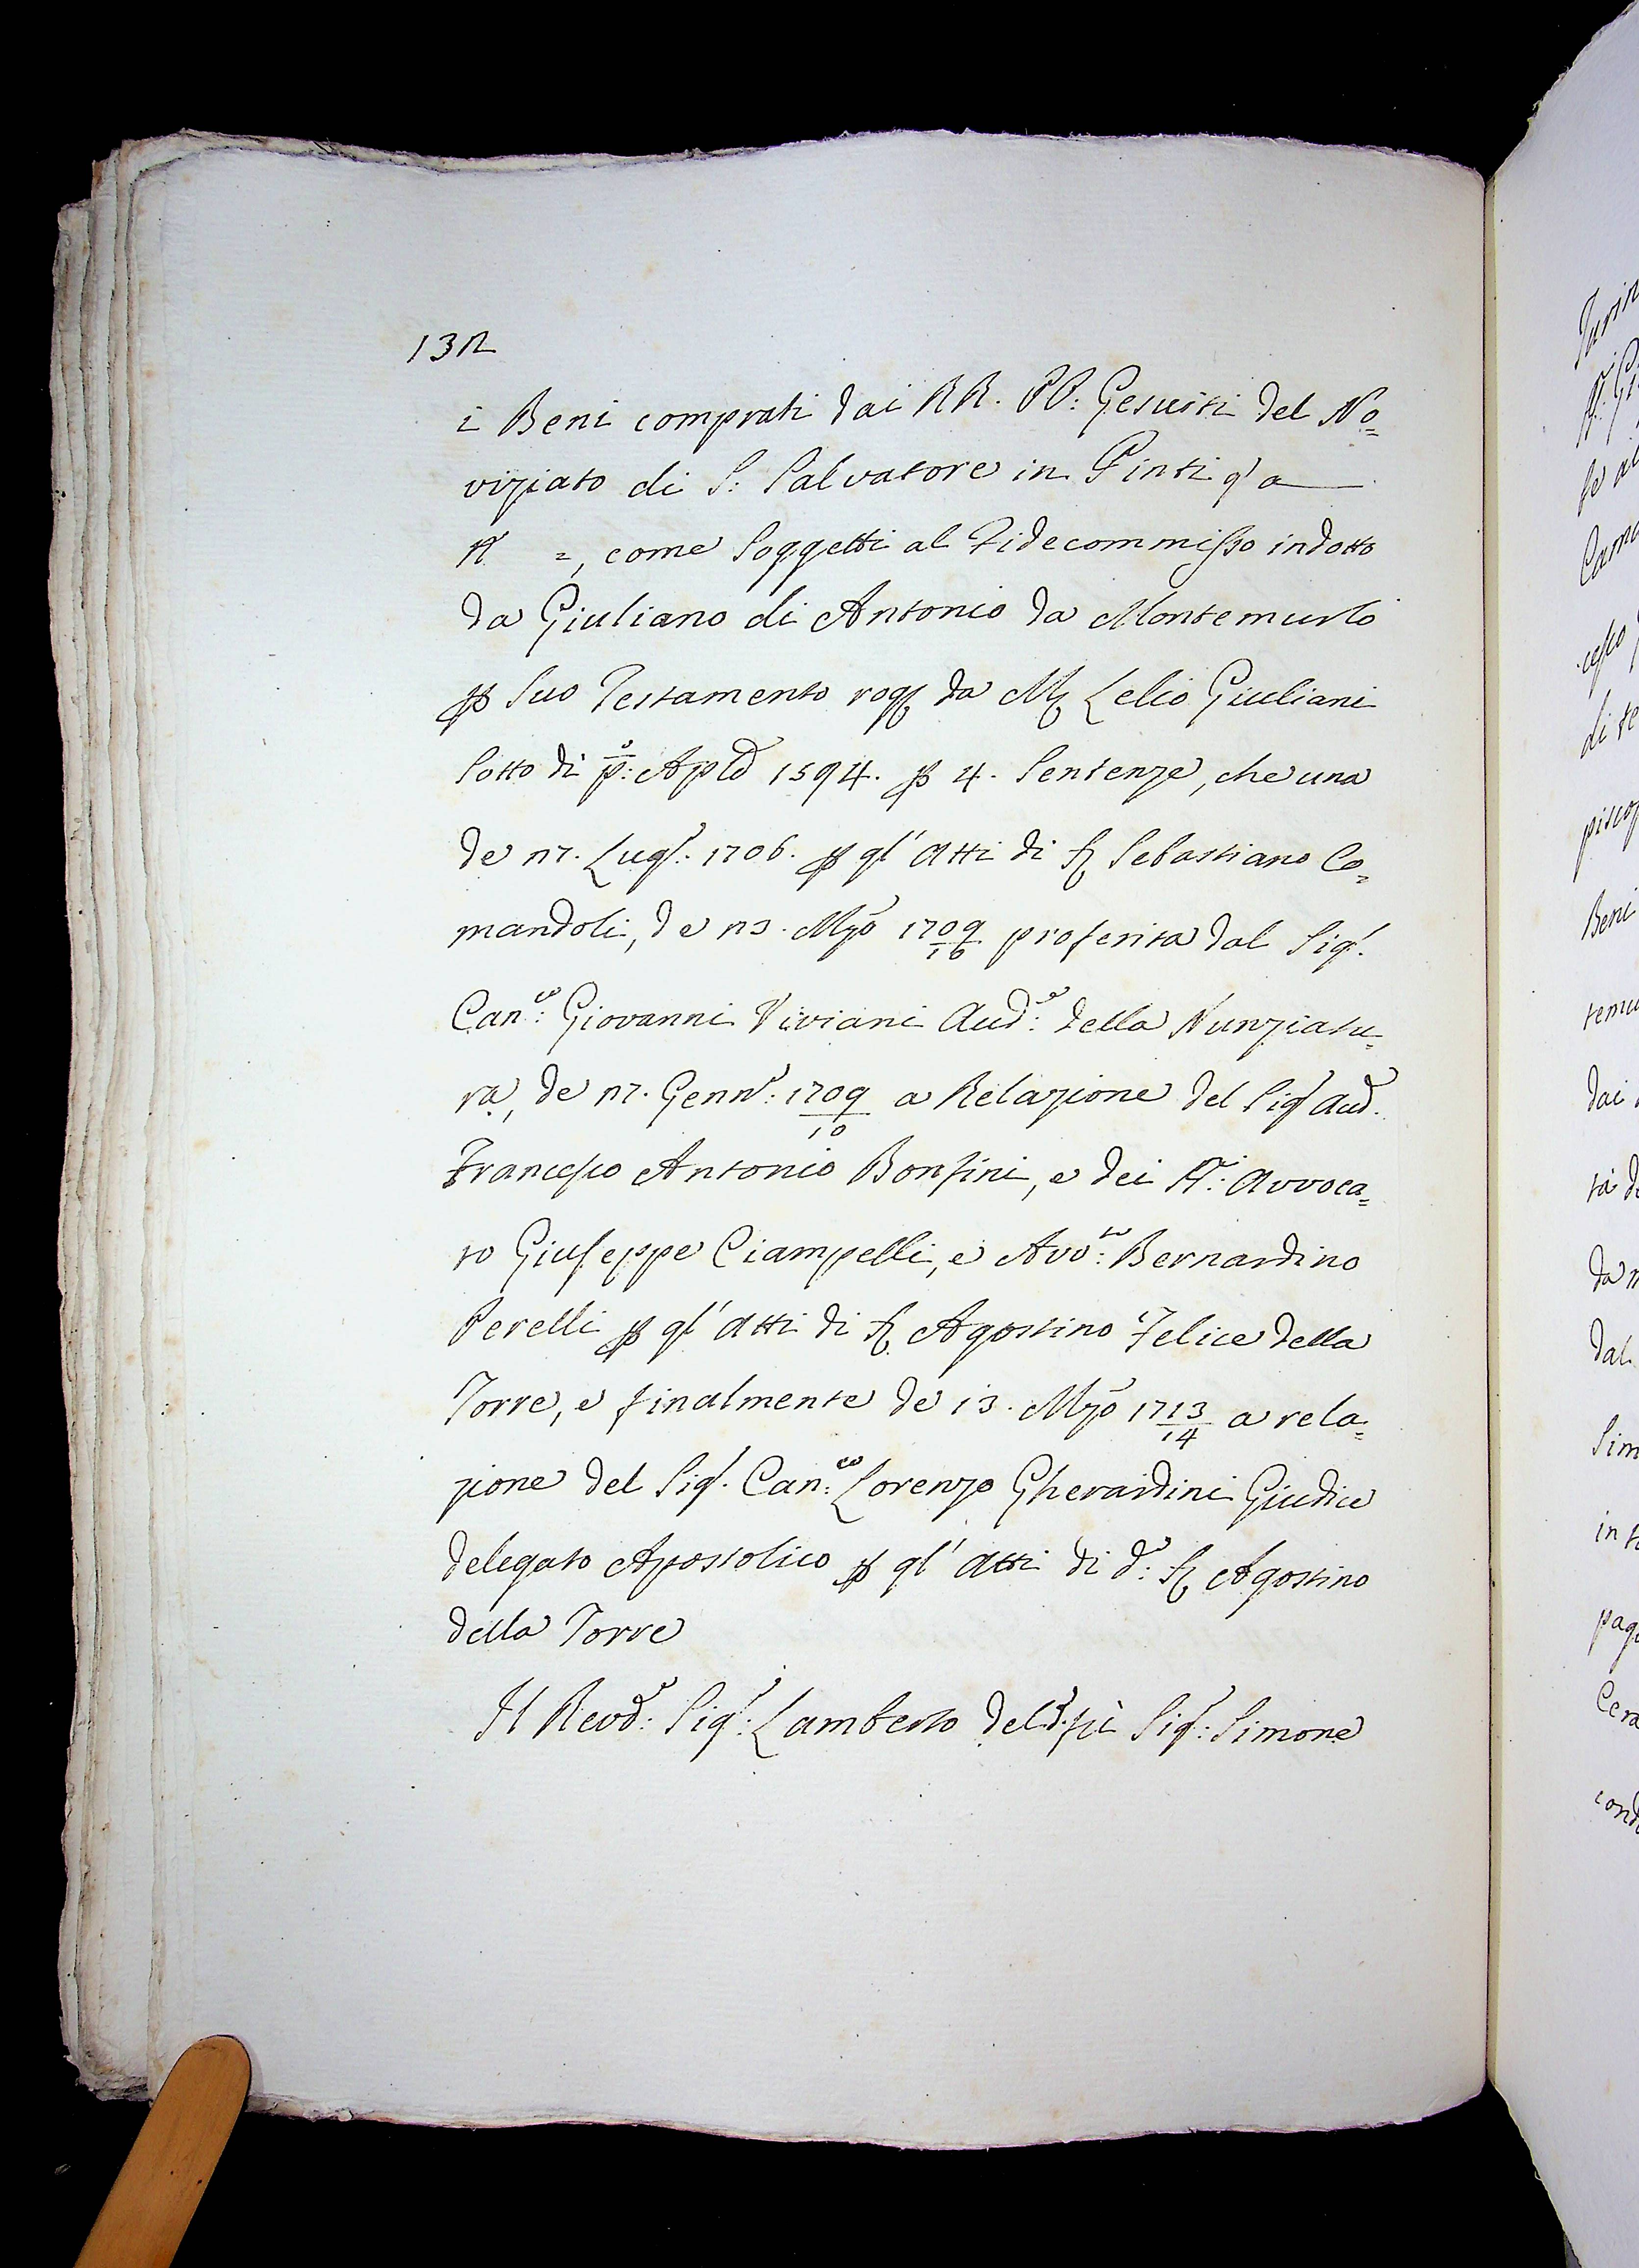 132
i Beni comprati dai RR. PP: Gesuiti del No=
viziato di S: Salvatore in Pinti
=, come Soggetti al Fidecommisso indotto
da Giuliano di Antonio da Montemurlo
p Suo Testamento rog da Lelio Giuliani
Sotto di p:o Aple 1594. p 4. Sentenze, che una
de 27. Lug: 1706. p gl' Atti di Sebastiano Co=
mandoli, de 23. Mzo 1709/10 proferita dal Sig.
Can:co Giovanni Viviani Aud:e della Nunziatu=
ra, de 27. Genn: 1709/10 a Relazione del Sig Aud.
Francesco Antonio Bonfini, e dei SS:ri Avvoca=
to Giuseppe Ciampelli, e Avv:to Bernardino
Perelli p gl' Atti di Agostino Felice della
Torre, e finalmente de 13. Mzo 1713/14 a rela=
zione del Sig. Can:co Lorenzo Gherardini Giudice
delegato Apostolico p gl' Atti di d:o Agostino
della Torre
Il Revd: Sig: Lamberto del Sig: Simone